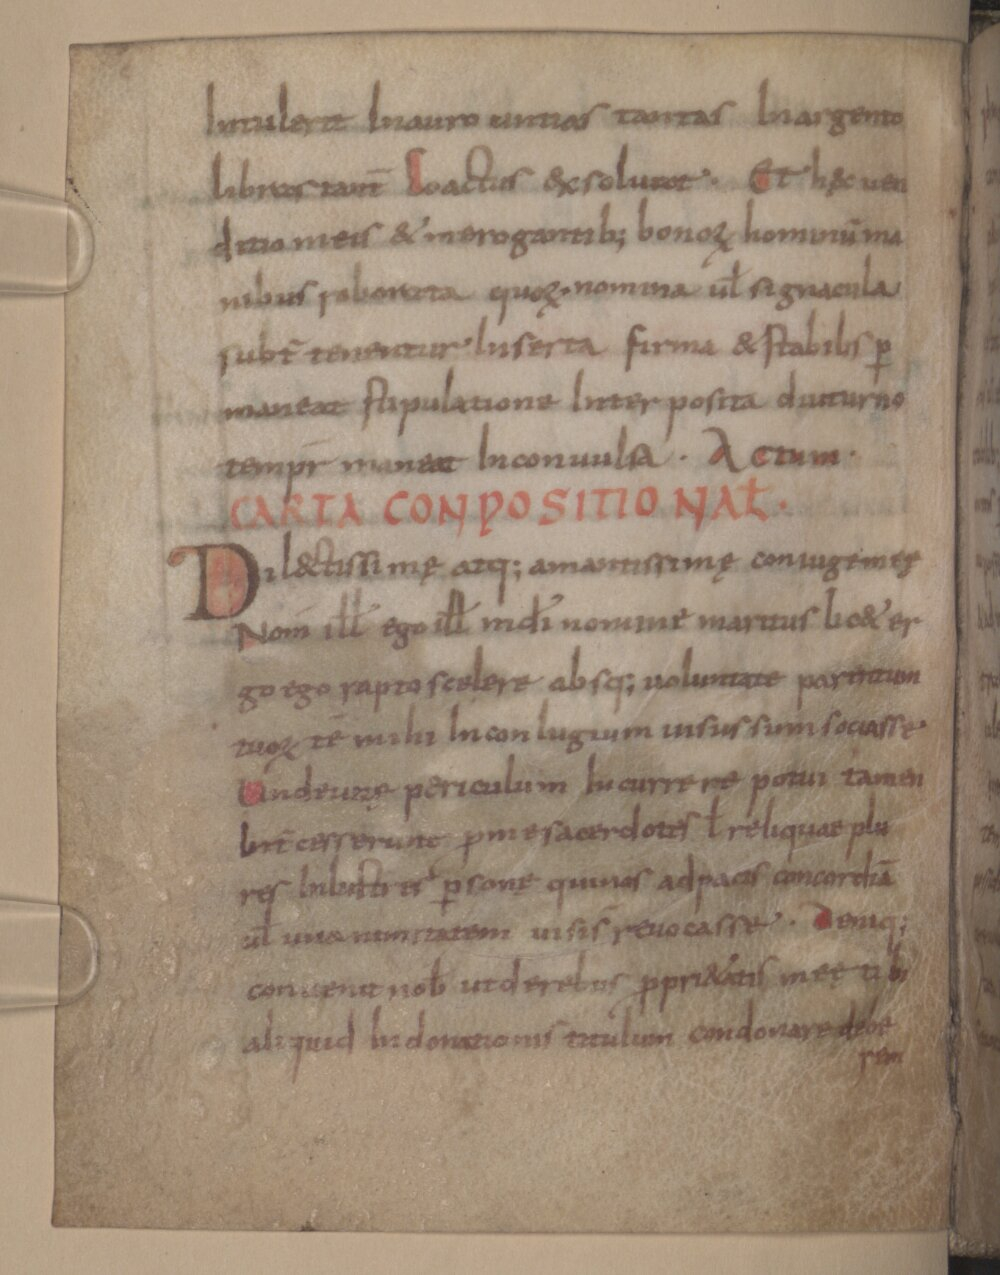 Intulerit Inauro untias tantas Inargento
libras tant̄ Coactus &xsoluat· Et hęc uen
ditio meis & merogantib; bonoꝝ hominū ma
nibus roborata quoꝝ nomina ul̄ signacula
subt̄ tenentur Inserta firma & stabilis ꝑ
maneat stipulatione Inter posita diuturno
tempr̄ maneat Inconuulsa · Actum ·
CARTA CONPOSITIONAL̄·
Dil&ctissimę atq; amantissimę coniugi meę
Nom̄ ill̄ ego ill̄ indī nomine maritus lic& er
go ego rapto scelere absq; uoluntate parentum
tuoꝝ tē mihi Inconiugium uisus sum sociasse
Unde uitę periculum Incurrere potui tamen
Int̄cesserunt sacerdotes l̄ reliquae plu
res Inlustres ꝑsone qui nos ad pacis concordiā
ul̄ unanimitatem uisi s̄ reuocasse· Deniq;
conuenit nob̄ ut de rebus ꝓpri&atis meę tibi
aliquid Indonationis titulum condonare debe
rem